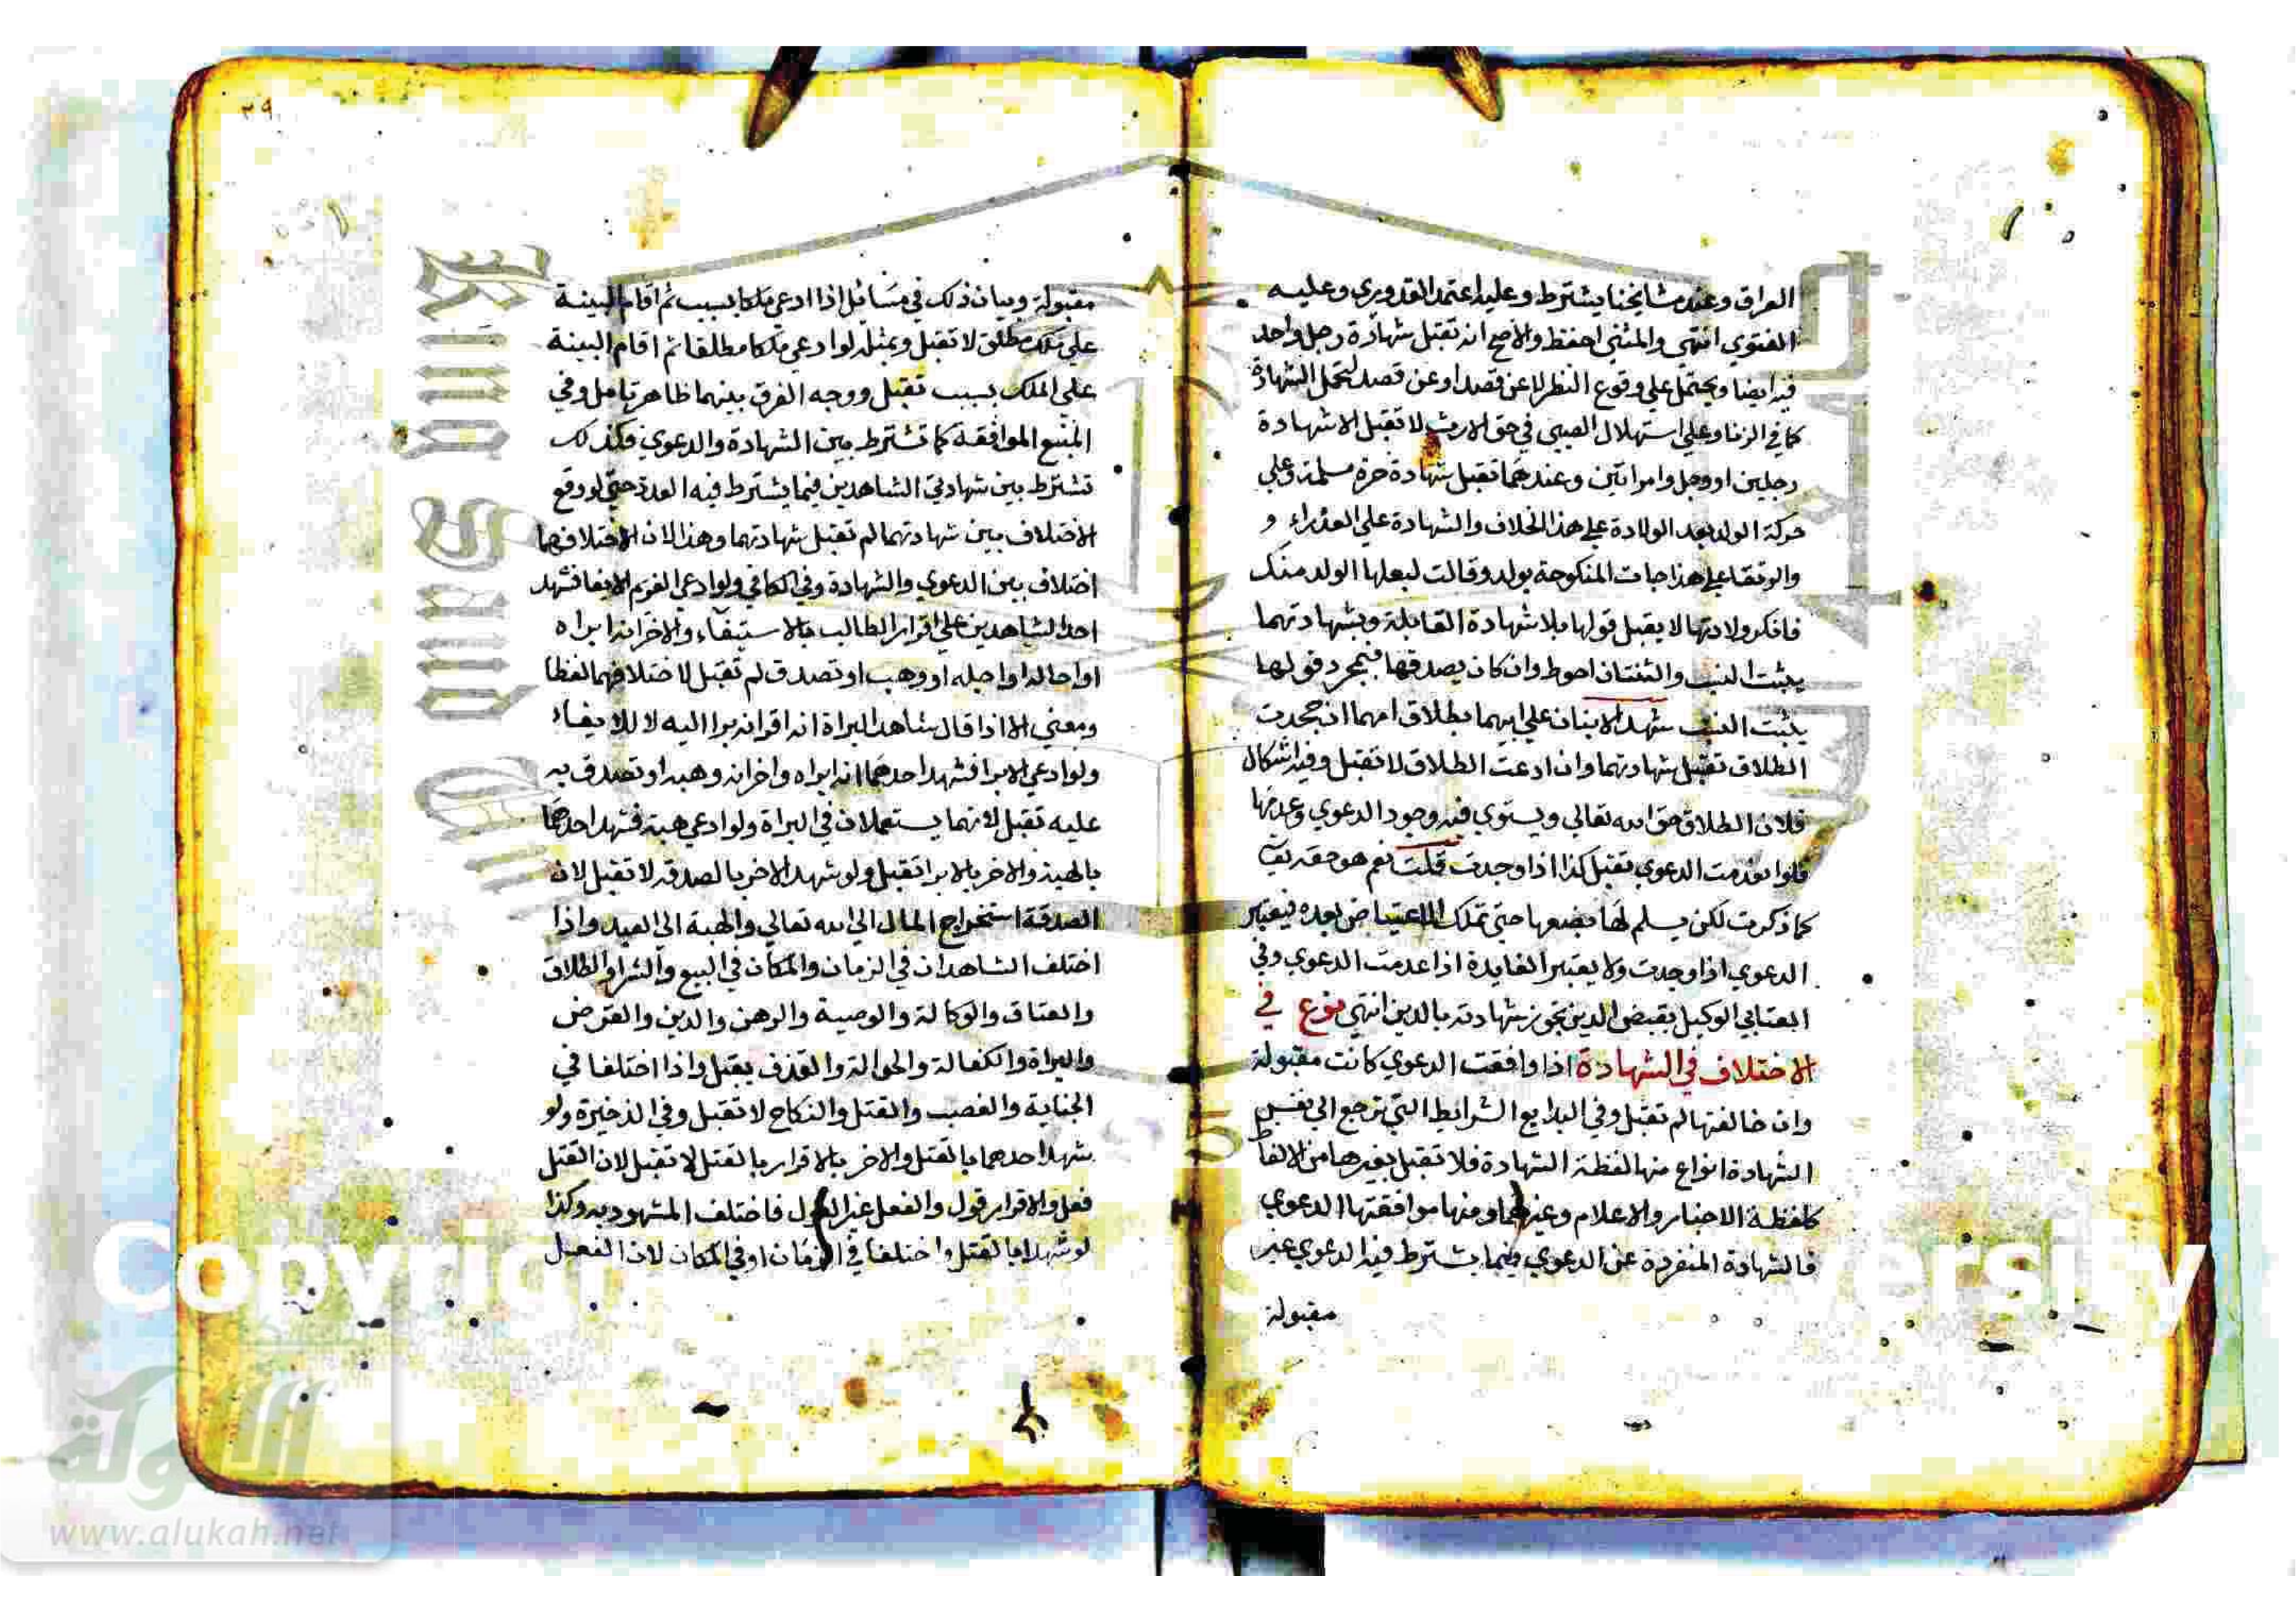 العراق وعند مشايخنا يشترط وعليه اعتمد القدوري وعليه
الفتوي انتهي والمثني احفظ والاصح انه تقبل شهادة رجل واحد
فيه ايضا ويحتمل علي وقوع النظر لا عن قصد او عن قصد لتحمل الشهادة
كما في الزنا وعلي استهلال الصبي في حق الارث لا تقبل الا شهادة
رجلين او رجل وامراتين وعندهما تقبل شهادة حرة مسلمة وعلي
حركة الولد بعد الولادة علي هذا الخلاف والشهادة علي العذراء و
والرتقا علي هذا جات المنكوحة بولد وقالت لبعلها الولد منك
فانكر ولادتها لا يقبل قولها بلا شهادة القابلة وبشهادتهما
يثبت النسب والثنتان احوط وان كان يصدقها فبمجرد قولها
يثبت النسب شهد الابنان علي ابيهما بطلاق امهما ان جحدت
الطلاق تقبل شهادتهما وان ادعت الطلاق لا تقبل وفيه اشكال
فلان الطلاق حق الله تعالي ويستوي فيه وجود الدعوي وعدمها
فلو انعدمت الدعوي تقبل كذا اذا وجدت قلت نعم هو حقه تعالي
كما ذكرت لكن يسلم لها بضعها حتي تملك الاعتياض بعده فيعتبر
الدعوي اذا وجدت ولا يعتبر الفايدة اذا عدمت الدعوي وفي
العتابي الوكيل بقبض الدين تجوز شهادته بالدين انتهي نوع في
الاختلاف في الشهادة اذا وافقت الدعوي كانت مقبولة
وان خالفتها لم تقبل وفي البدايع الشرائط التي ترجع الي نفس
الشهادة انواع منها لفظة الشهادة فلا تقبل بغيرها من الالفاظ
كلفظة الاخبار والاعلام وغيرهما ومنها موافقتها الدعوي
فالشهادة المنفردة عن الدعوي فيما يشترط فيه الدعوي غير
مقبولة
٢٩
مقبولة وبيان ذلك في مسائل اذا ادعي ملكا بسبب ثم اقام البينة
علي ملك مطلق لا تقبل وبمثله لو ادعي ملكا مطلقا ثم اقام البينة
علي الملك بسبب تقبل ووجه الفرق بينهما ظاهر تامل وفي
المنبع الموافقة كما تشترط بين الشهادة والدعوي فكذلك
تشترط بين شهادتي الشاهدين فيما يشترط فيه العدد حتي لو وقع
الاختلاف بين شهادتهما لم تقبل شهادتهما وهذا لان اختلافهما
اختلاف بين الدعوي والشهادة وفي الكافي ولو ادعي الغريم الايفا فشهد
احد الشاهدين علي اقرار الطالب بالاستيفاء والاخر انه ابراه
او احاله او اجله او وهب او تصدق لم تقبل لاختلافهما لفظا
ومعني الا اذا قال شاهد البراة انه اقر انه برا اليه لا للايفاء
ولو ادعي الابرا فشهد احدهما انه ابراه واخر انه وهبه او تصدق به
عليه تقبل لانهما يستعملان في البراة ولو ادعي هبة فشهد احدهما
بالهبة والاخر بالابرا تقبل ولو شهد الاخر بالصدقة لا تقبل لان
الصدقة استخراج المال الي الله تعالي والهبة الي العبد واذا
اختلف الشاهدان في الزمان والمكان في البيع والشرا والطلاق
والعتاق والوكالة والوصية والرهن والدين والقرض
والبراة والكفالة والحوالة والقذف يقبل واذا اختلفا في
الجناية والغصب والقتل والنكاح لا تقبل وفي الذخيرة ولو
شهد احدهما بالقتل والاخر بالاقرار بالقتل لا تقبل لان القتل
فعل والاقرار قول والفعل غير القول فاختلف المشهود به وكذا
لو شهدا بالقتل واختلفا في الزمان او في المكان لان الفعل
www.alukah.net